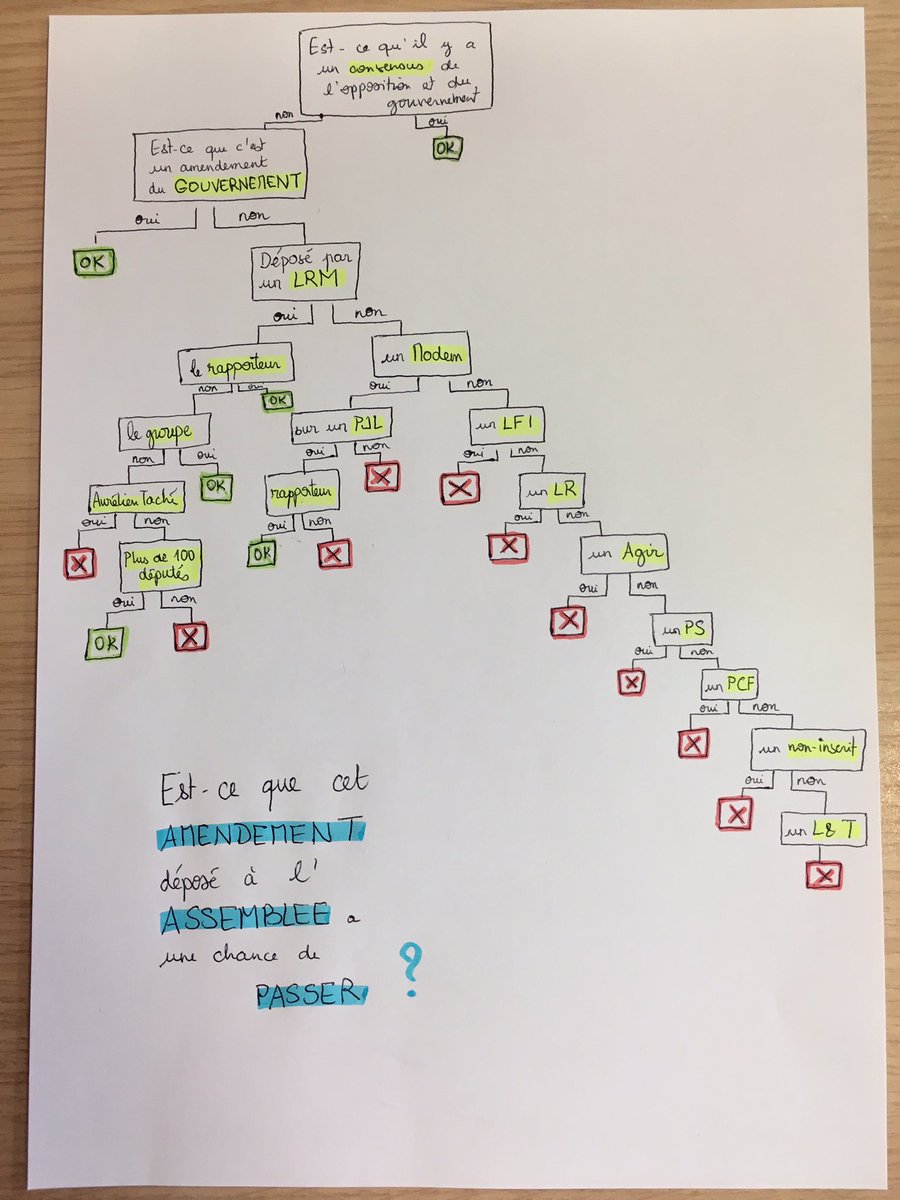 Est-ce qu'il y a
un consensus de
l'opposition et du
gouvernement
non
oui
OK
Est-ce que c'est
un amendement
du GOUVERNEMENT
oui
non
OK
Déposé par
un LRM
oui
non
le rapporteur
un Modem
non
oui
OK
oui
non
le groupe
sur un PJL
un LFI
non
oui
oui
non
oui
non
Aurélien Taché
OK
rapporteur
X
X
un LR
oui
non
oui
non
oui
non
X
Plus de 100
députés
OK
X
X
un Agir
oui
non
oui
non
OK
X
X
un PS
oui
non
X
un PCF
oui
non
X
un non-inscrit
oui
non
X
un L&T
X
Est-ce que cet
AMENDEMENT
déposé à l'
ASSEMBLEE a
une chance de
PASSER ?